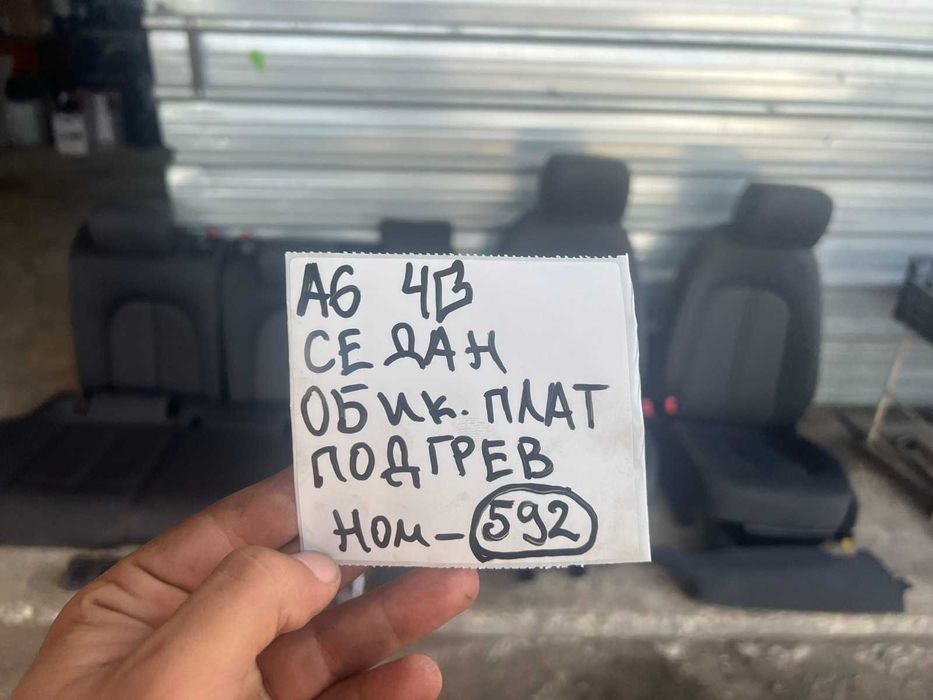 А6 4В
СЕДАН
ОБИК. ПЛАТ
ПОДГРЕВ
НОМ- 592